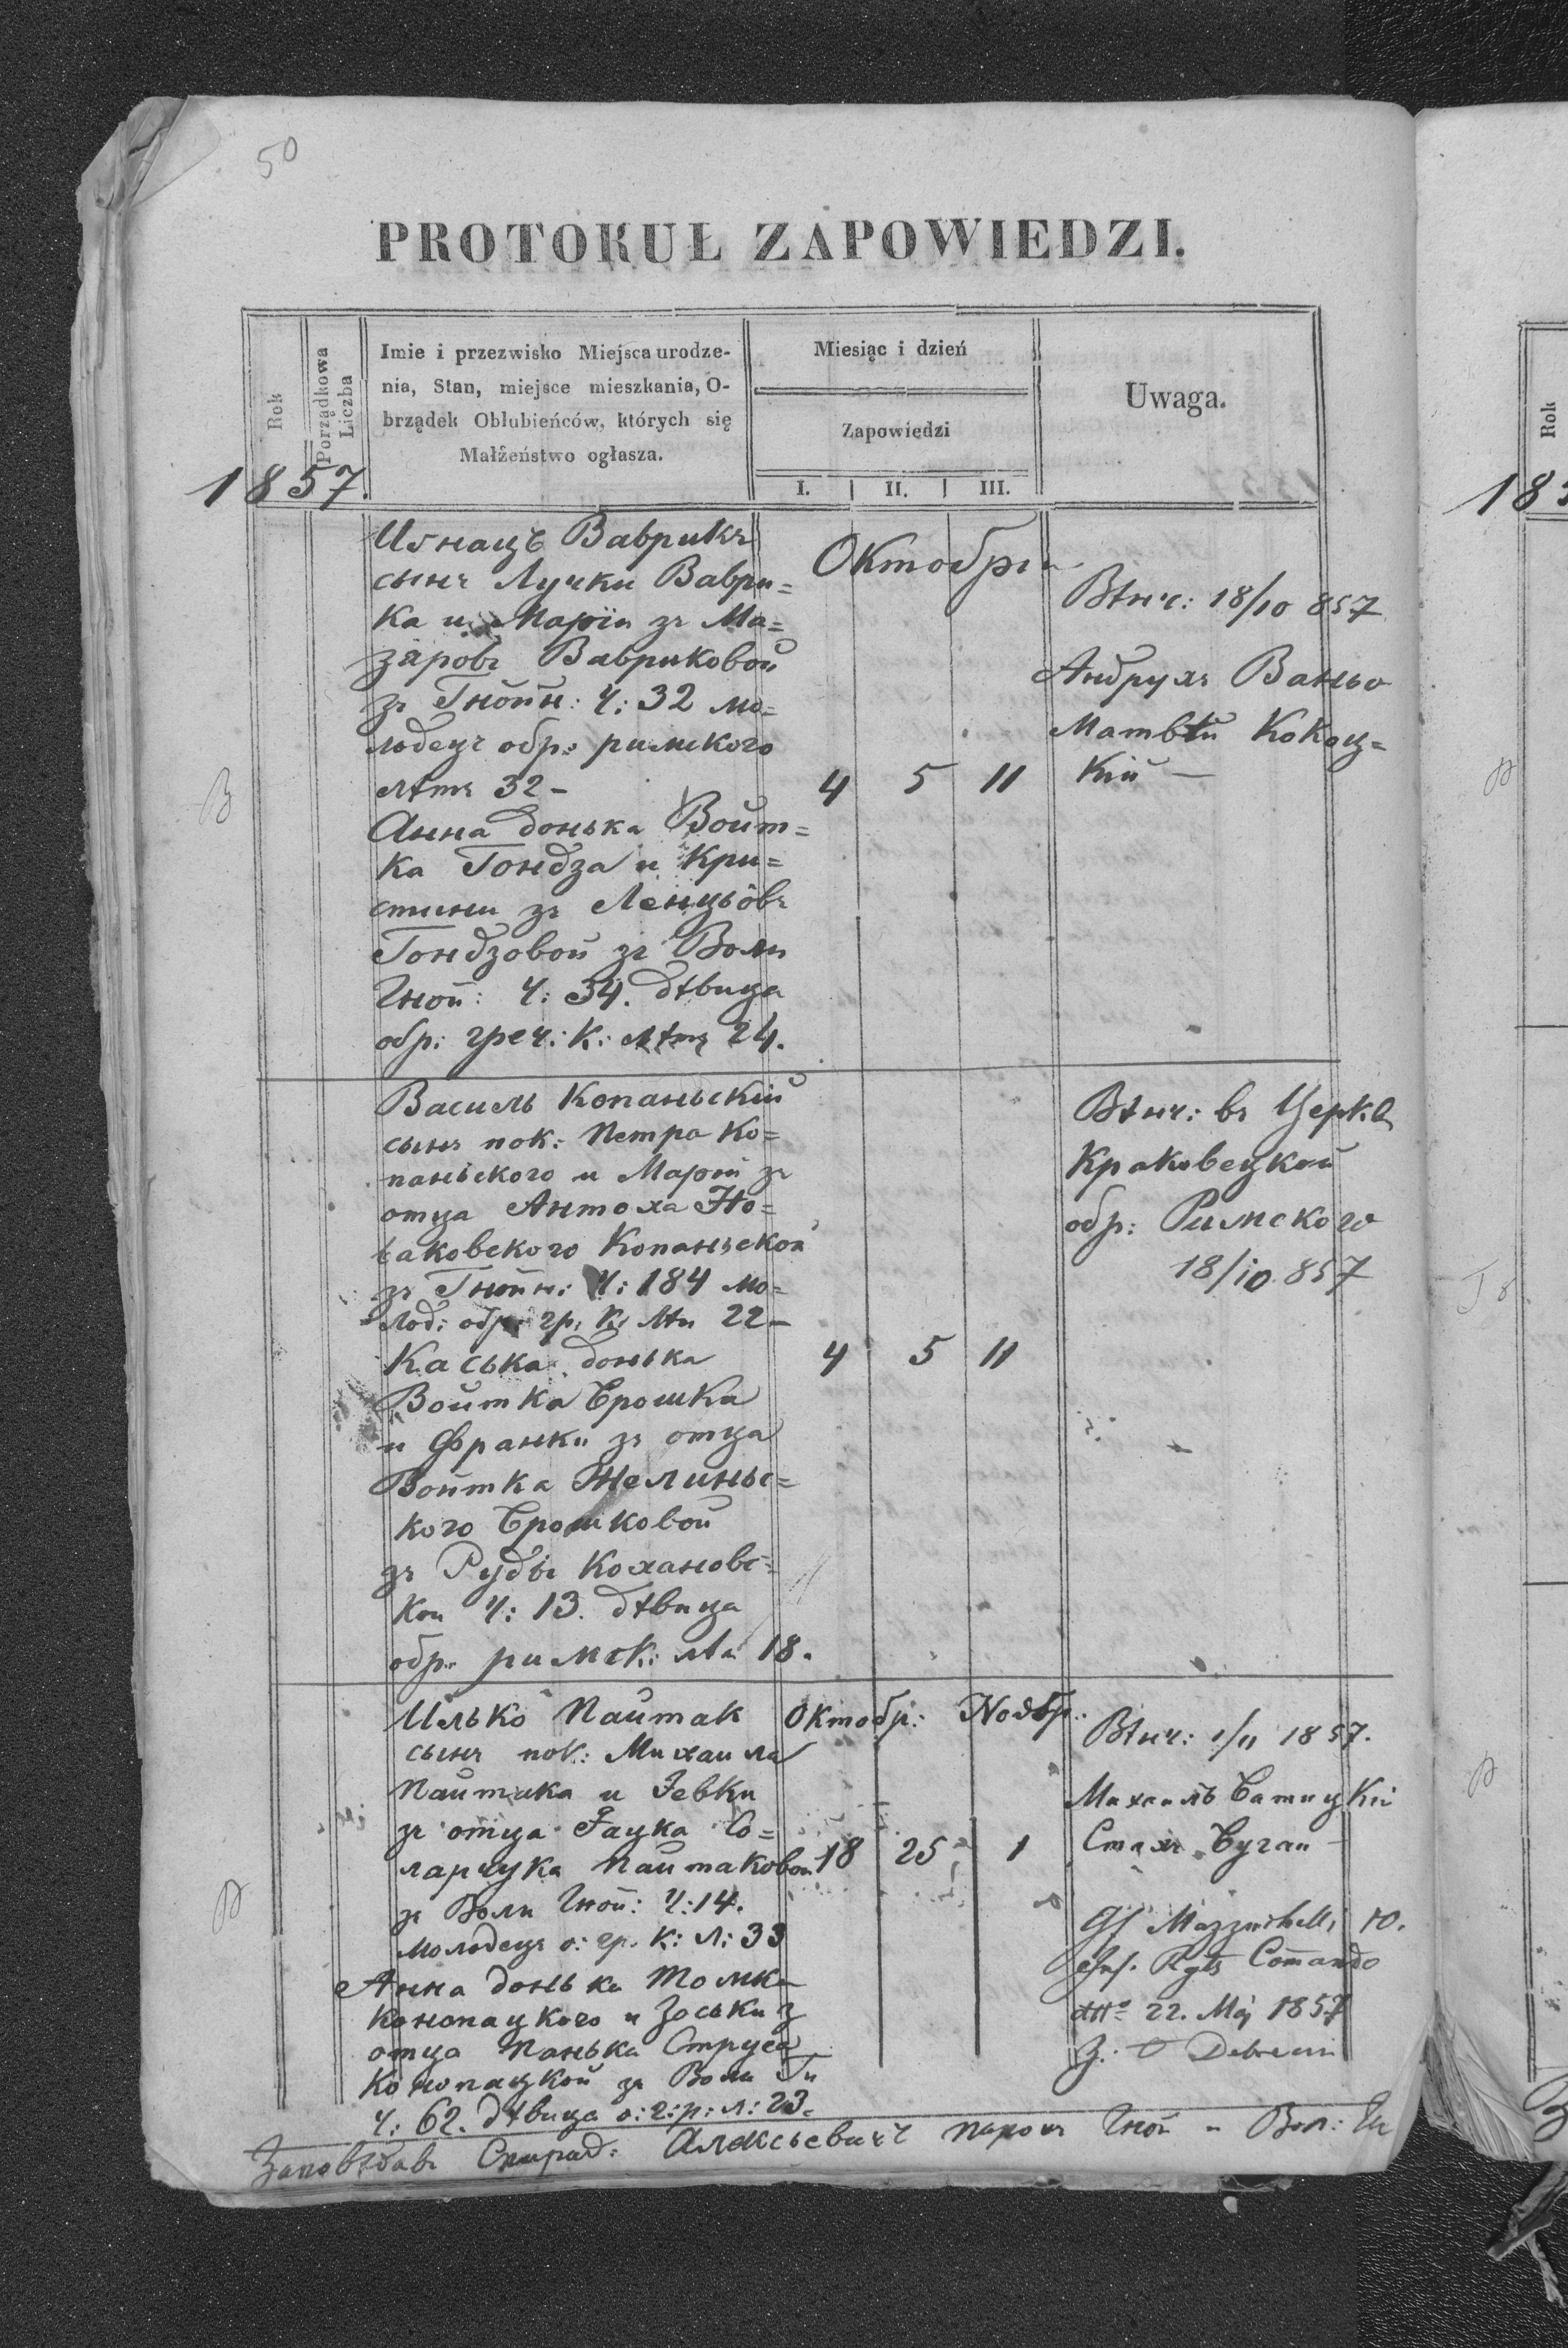 50
PROTOKUŁ ZAPOWIEDZI.
Rok
Porządkowa Liczba
Imie i przezwisko Miejsca urodze-
nia, Stan, miejsce mieszkania, O-
brządek Obłubieńców, których się
Małżeństwo ogłasza.
Miesiąc i dzień
Zapowiedzi
I. II. III.
Uwaga.
1857.
Игнацъ Ваврикъ
сынъ Лучки Ваври=
ка и Маріи зъ Ма=
заровъ Вавриковои
зъ Гнойн: Ч: 32 мо=
лодецъ обр: римского
лѣтъ 32 -
Анна донька Войт=
ка Гондза и Кри=
стини зъ Ленцьôвъ
Гондзовой зъ Воли
Гной: Ч: 34. дѣвица
обр: греч: к: лѣтъ 24.
Октобрія
4 5 11
Вѣнч: 18/10 857
Андрухъ Ваньо
Матвѣй Кокоц=
кій —
В
Василь Копаньскій
сынъ пок: Петра Ко=
паньского и Маріи зъ
отца Антоха
Копаньской
зъ Гнойн: Ч: 184 мо=
лод: обр: гр: к: лѣт 22 -
Каська донька
Войтка Брошка
и Франки зъ отца
Войтка Желиньс=
кого Брошковой
зъ Руды Кохановс=
кои Ч: 13. дѣвица
обр: римск: лѣт 18.
4 5 11
Вѣнч: въ Церкв
Краковецкой
обр: Римского
18/10 857
Илько Пайтак
сынъ пок: Михаила
Пайтака и Євки
зъ отца Яцка Со=
лярчука Пайтаковой
зъ Воли Гной: Ч: 14.
молодецъ о: гр. к: л: 33
Анна донька Томка
Конопацкого и Зоськи з
отца Панька Струса
Конопацкой зъ Воли Гн
Ч: 62. дѣвица о: г: р: л: 23.
Октобр: Ноябр:
18 25 1
Вѣнч: 1/11 1857.
Михаилъ Батицкій
Стахъ Бучан —
Gf Mazzuchelli 10.
Inf. Rgts Comando
dtto 22. Maj 1857
Z. O Debrecin
В
Заповѣдавъ Спирид: Алексѣевичъ парохъ Гной и Вол: Гн
Rok